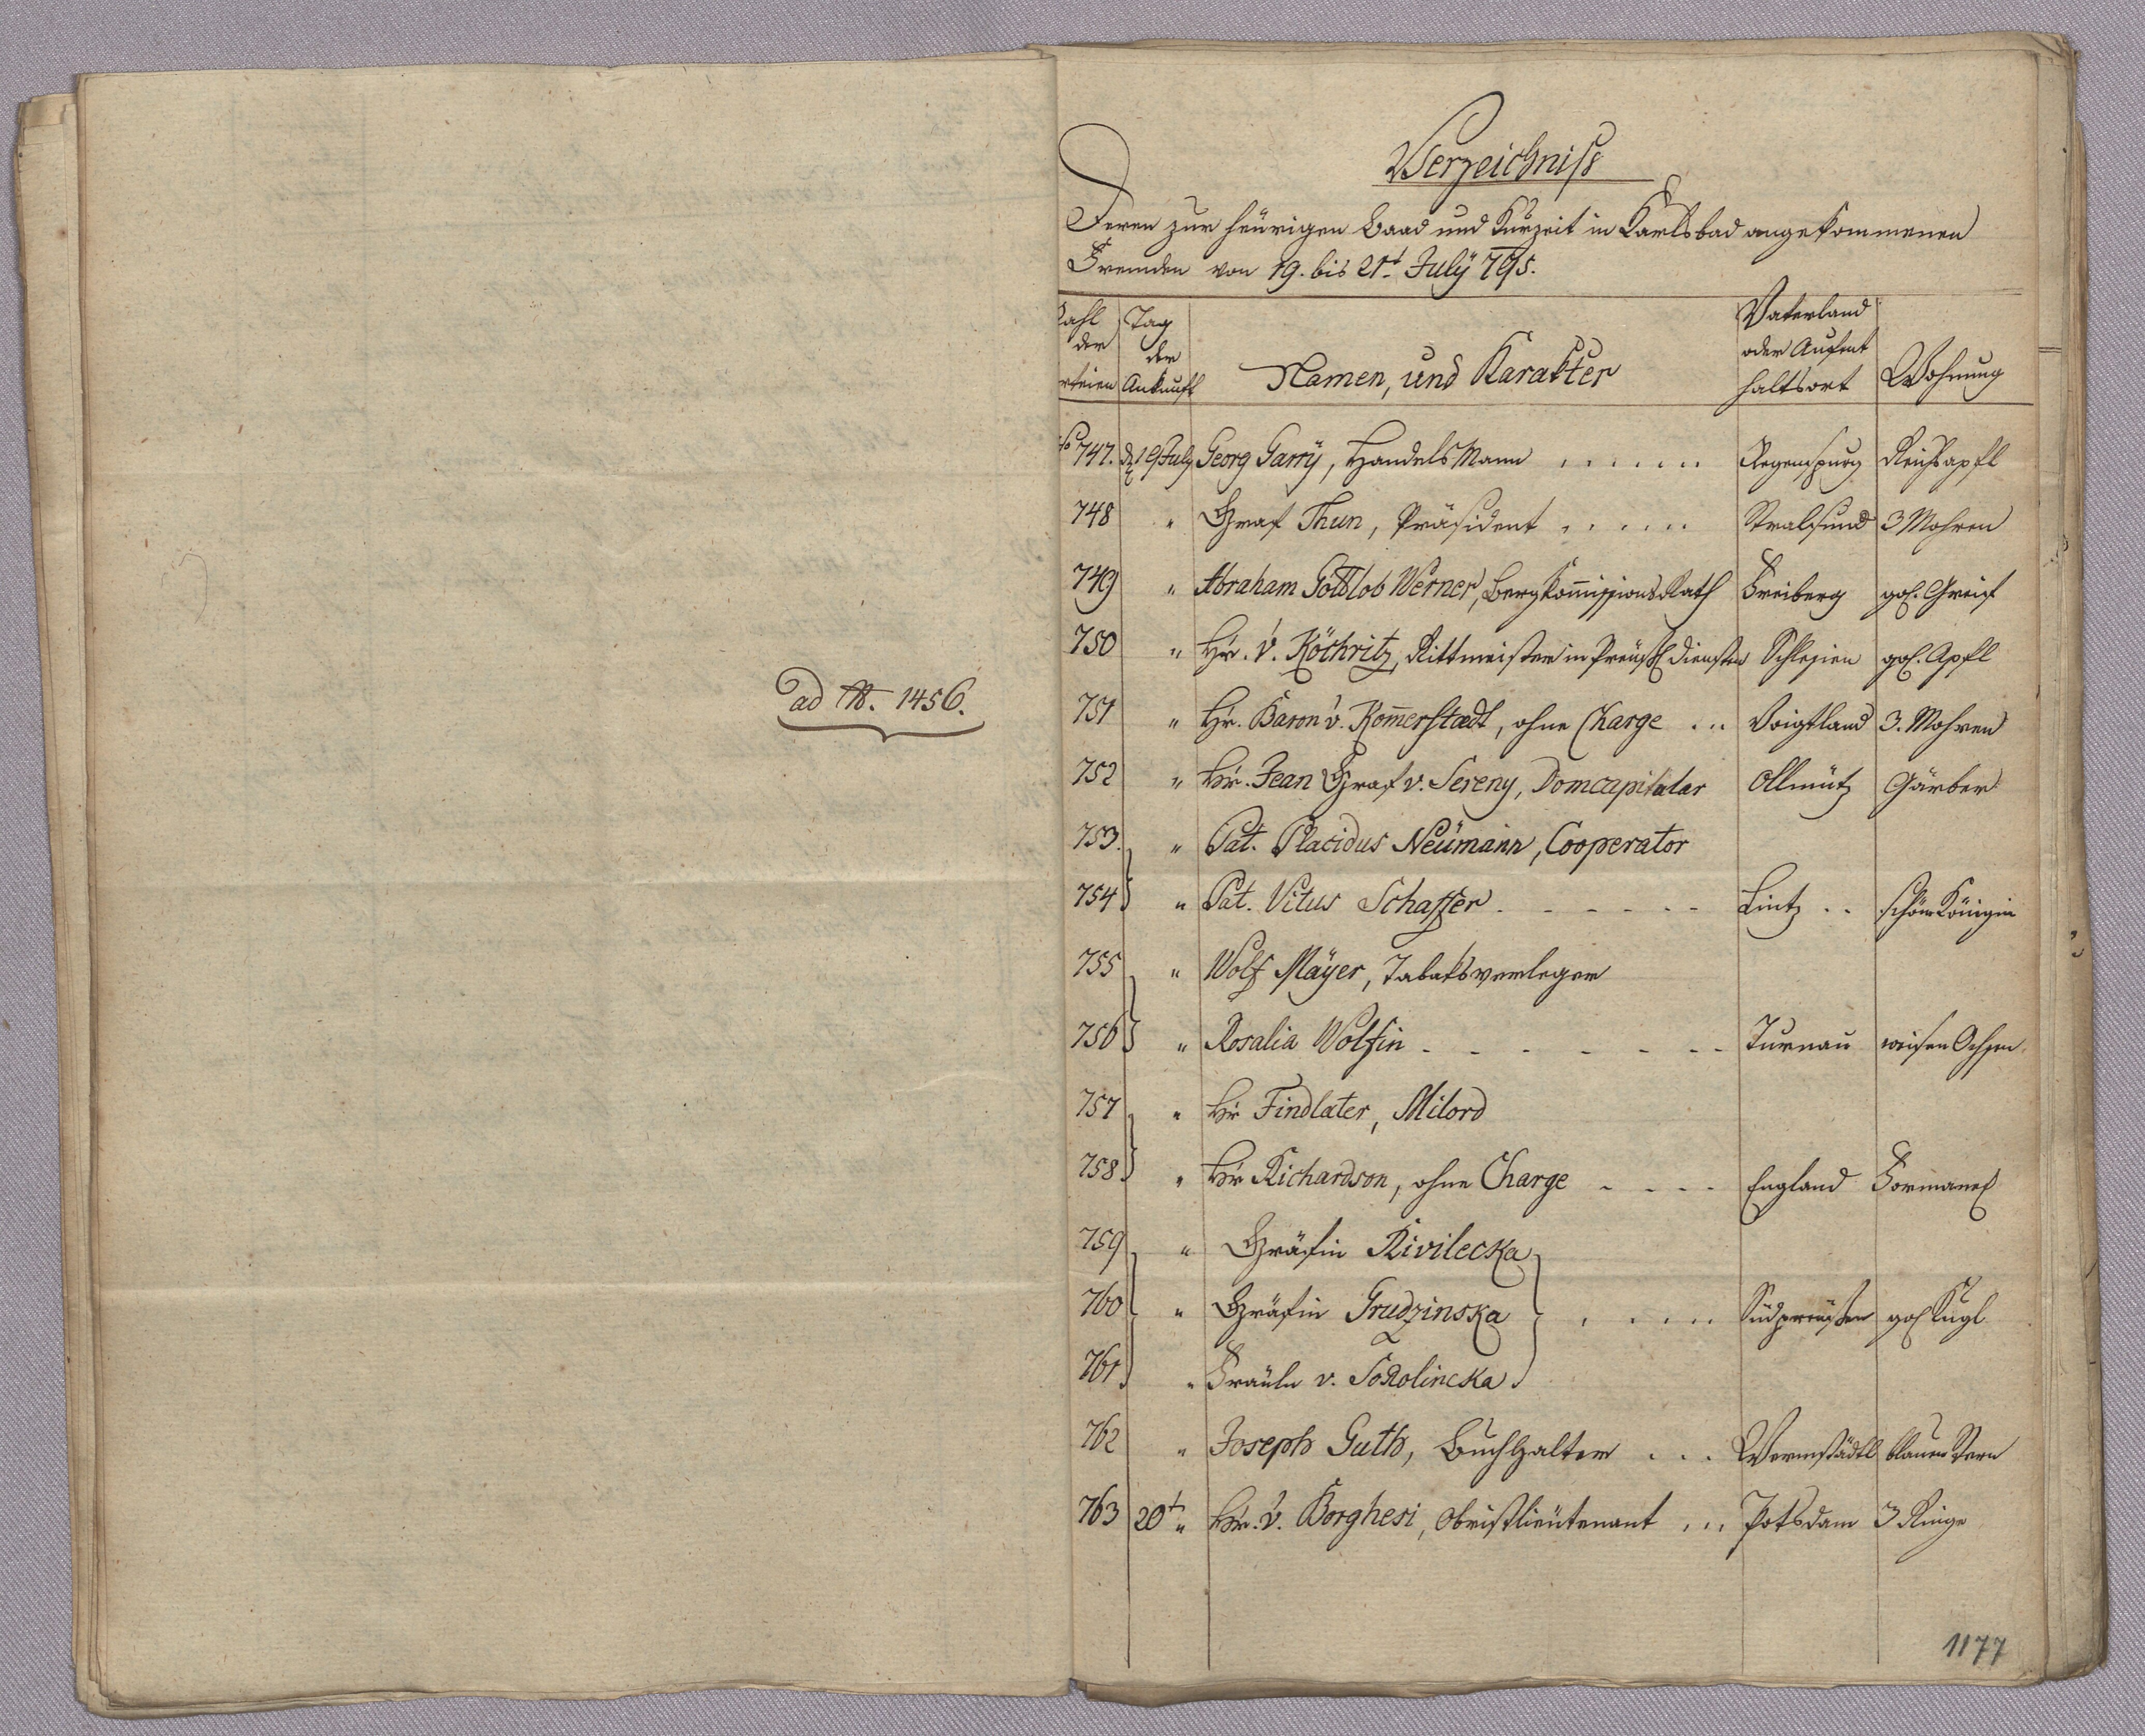 ad N. 1456.
Verzeichniss
Deren zur heürigen Baad und Kurzeit in Karlsbad angekommenen
Fremden von 19. bis 21t July 795.
Zahl der Parteien | Tag der Ankunft | Namen, und Karakter | Vaterland oder Aufent haltsort | Wohnung
No 747. d 19 July Georg Garrÿ, Handels Mann ...... Regenspurg Reichsapfl
748 " Graf Thun, Präsident ...... Stralsund 3 Mohren
749 " Abraham Gottlob Werner, Bergkom̅issions Rath Freiberg gol. Greif
750 " Hr. v. Köckritz, Rittmeister in Preüßl Diensten Schlesien gol. Apfl
751 " Hr. Baron v. Kom̅erstædt, ohne Charge ... Voigtland 3. Mohren
752 " Hr. Jean Graf v. Sereny, Domcapitular Ollmütz Gärber
753. " Pat. Placidus Neümann, Cooperator
754 " Pat. Vitus Schaffer - - - - - - Lintz .. schöne Königin
755 " Wolf Mäyer, Tabaksverleger
756 " Rosalia Wolfin - - - - - - - Turnau weisen Ochsen
757 " Hr Findlater, Milord
758 " Hr Richardson, ohne Charge - - - - England
759 " Gräfin Kivilecka
760 " Gräfin Grudzinska ..... Südpreüßen gol Kugl
761 " Fräuln v. Sokolincka
762 " Joseph Guth, Buchhalter ... blauen Stern
763 20t " Hr. v. Borghesi, Obristlieütenant ... Potsdam 3 Ringe
1177